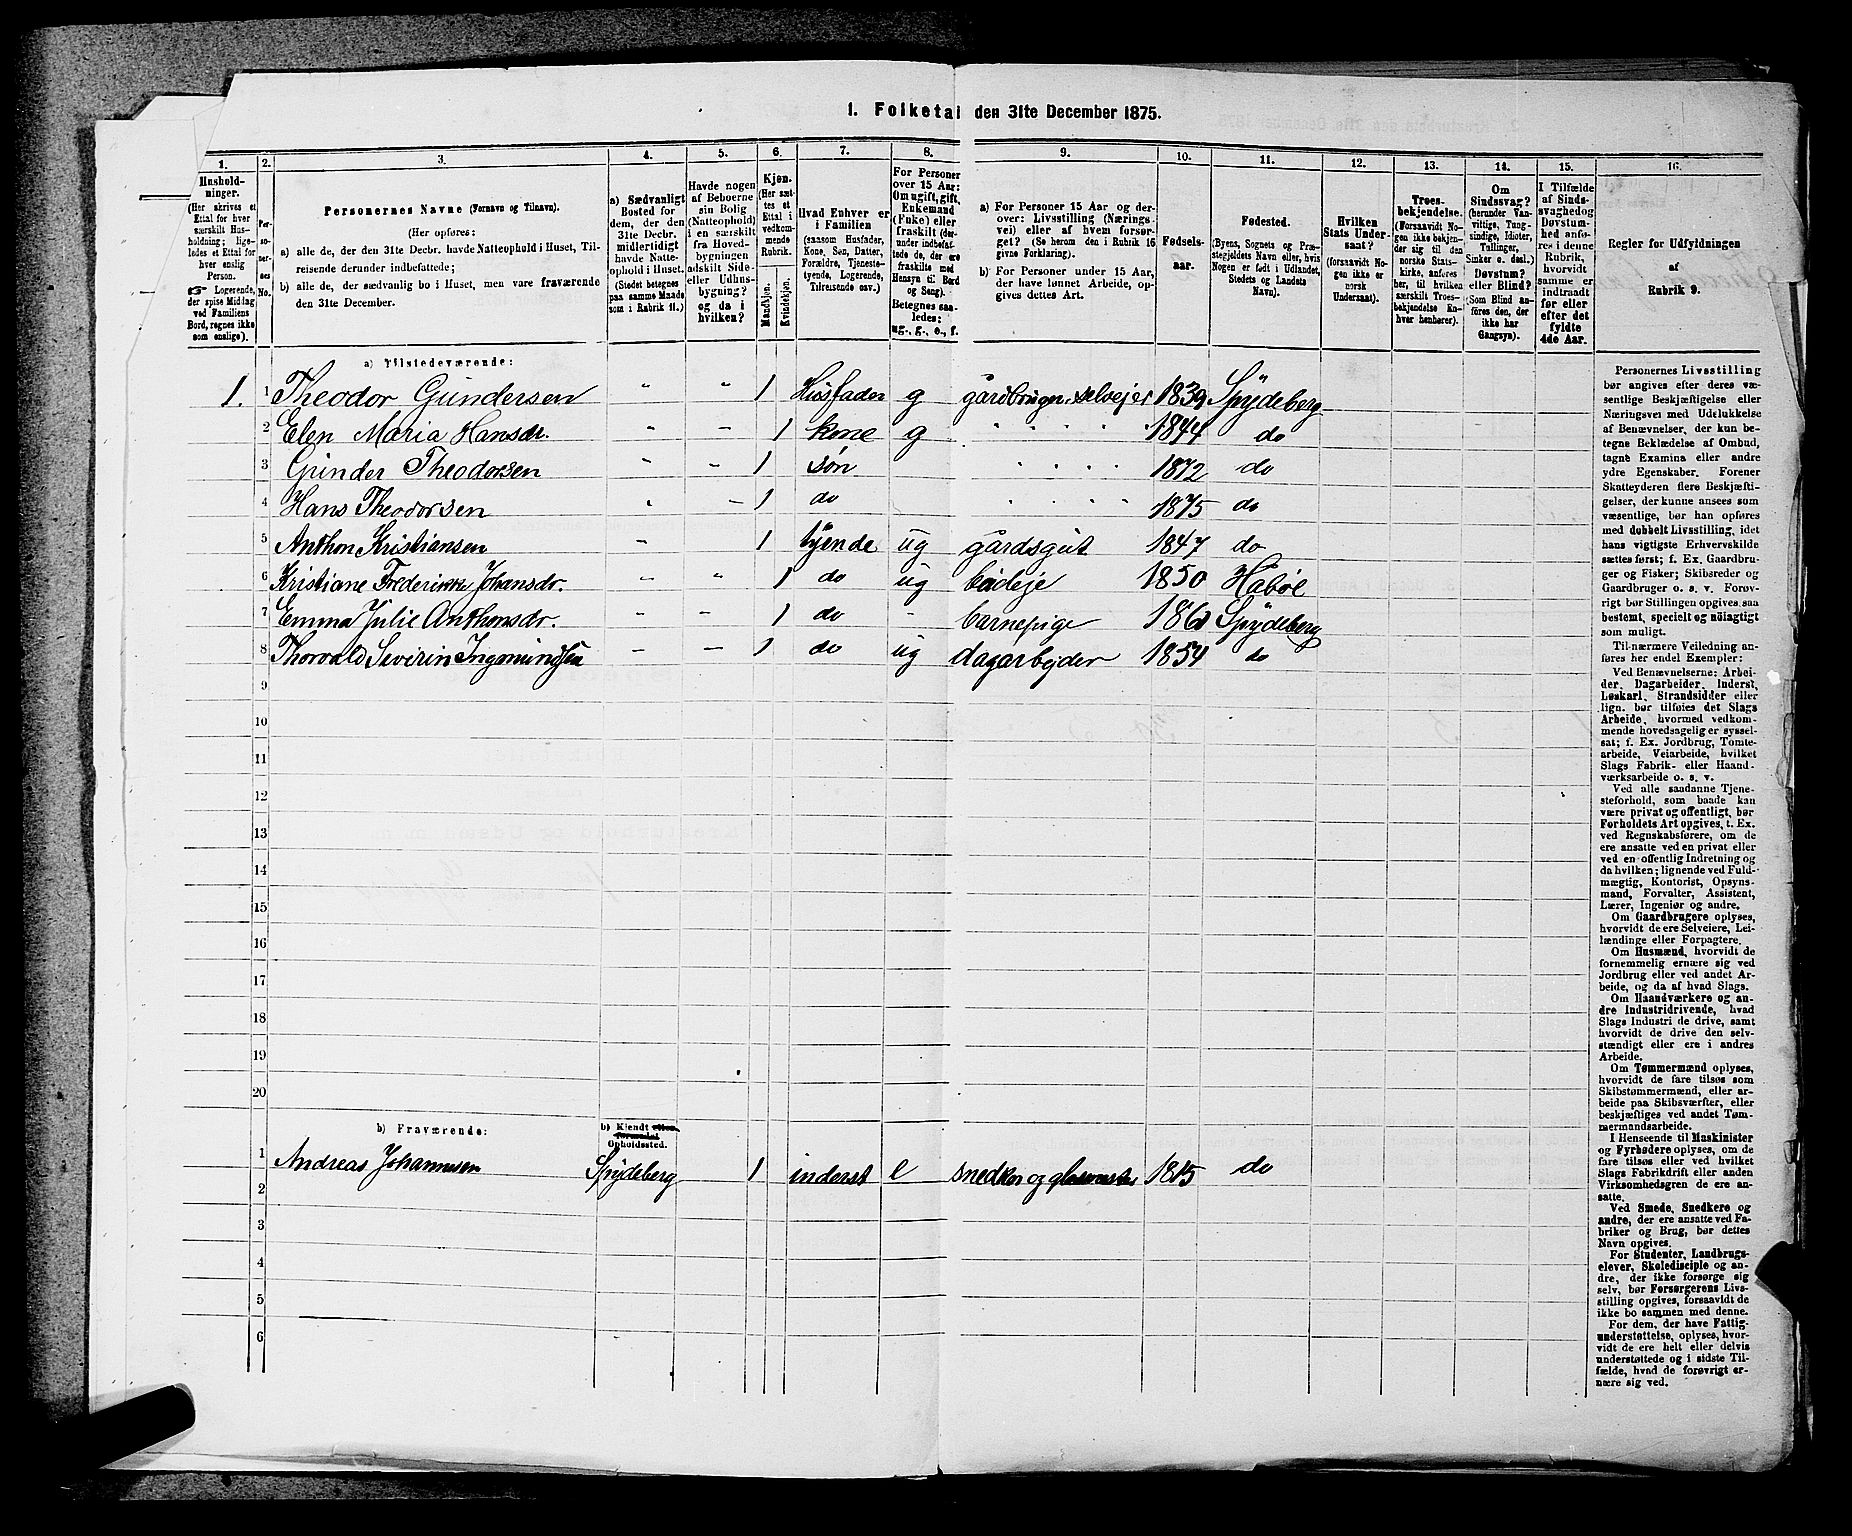 1. Folketal den 31te December 1875.
1. 2. 3. 4. 5. 6. 7. 8. 9. 10. 11. 12. 13. 14. 15. 16.
Husholdninger.
(Her skrives et
Ettal for hver
særskilt Husholdning;
ligeledes
et Ettal for
hver enslig
Person.
☞ Logerende,
der spise Middag
ved Familiens
Bord, regnes ikke
som enslige).
Personernes No.
Personernes Navne (Fornavn og Tilnavn).
(Her opføres:
a) alle de, der den 31te Decbr. havde Natteophold i Huset, Tilreisende derunder indbefattede;
b) alle de, der sædvanlig bo i Huset, men vare fraværende
den 31te December.
a) Sædvanligt
Bosted for
dem, der den
31te Decbr.
midlertidigt
havde Natteophold
i Huset.
(Stedet betegnes
paa samme Maade
som i Rubrik 11.)
Havde nogen
af Beboerne
sin Bolig
(Natteophold)
i en særskilt
fra Hovedbygningen
adskilt Side-
eller Udhusbygning?
og da i
hvilken?
Kjøn.
(Her sættes
et
Ettal i
vedkommende
Rubrik.
Mandkjøn.
Kvindekjøn.
Hvad Enhver er
i Familien
(saasom Husfader,
Kone, Søn, Datter,
Forældre, Tjenestetyende,
Logerende,
Tilreisende osv.)
For Personer
over 15 Aar:
Om ugift, gift,
Enkemand
(Enke) eller
fraskilt (derunder
indbefattede
de, ere
fraskilte med
Hensyn til Bord
og Seng).
Betegnes saaledes:
ug., g., e., f.
a) For Personer 15 Aar og derover:
Livsstilling (Næringsvei)
eller af hvem forsørget?
(Se herom den i Rubrik 16
givne Forklaring).
b) For Personer under 15 Aar,
der have lønnet Arbeide, opgives
dettes Art.
Fødselsaar.
Fødested.
(Byens, Sognets og Præstegjeldets
Navn eller, hvis
Nogen er født i Udlandet,
Stedets og Landets
Navn).
Hvilken
Stats Undersaat?
(forsaavidt Nogen
ikke er
norsk
Undersaat).
Troesbekjendelse.
(Forsaavidt Nogen
ikke bekjender
sig til den
norske Statskirke,
anføres
her, til hvilken
særskilt Troesbekjendelse
Enhver
henhører).
Om
Sindssvag?
(herunder Vanvittige,
Tungsindige,
Idioter,
Tullinger,
Sinker o. desl.).
Døvstum?
eller Blind?
(Som Blind anføres
den, der
ikke har
Gangsyn).
I Tilfælde
af Sindssvaghed
og
Døvstumhed
anføres
i denne
Rubrik,
hvorvidt
samme er
indtraadt
før eller
efter det
fyldte
4de Aar.
Regler for Udfyldningen
af
Rubrik 9.
a) Tilstedeværende:
1. 1 Theodor Gundersen " " 1 Husfader g gårdbruger, selvejer 1839 Spydeberg
2 Elen Maria Hansdr. " " 1 kone g " " " " 1844 do
3 Gunder Theodorsen " " 1 søn " " " " 1872 do
4 Hans Theodorsen " - 1 do " " " " 1875 do
5 Anthon Kristiansen " 1 tyende ug gårdsgut 1847 do
6 Kristiane Frederikke Johansdr. " " 1 do ug budeje 1850 Håbøl
7 Emma Julie Anthonsdr. - - 1 do - barnepige Spydeberg
8 Thorvald Severin Ingemundsen - - 1 do ug dagarbejder 1854 do
9
10
11
12
13
14
15
16
17
18
19
20
b) Fraværende:
b) Kjendt eller formodet
Opholdssted.
1 Andreas Johannesen Spydeberg 1 inderst e snedker og glasmester 1815 do
2
3
4
5
6
Personernes Livsstilling
bør angives efter deres væsentlige
Beskjæftigelse eller
Næringsvei med Udelukkelse
af Benævnelser, der kun betegne
Beklædelse af Ombud,
tagne Examina eller andre
ydre Egenskaber. Forener
Skatteyderen flere Beskjæftigelser,
der kunne ansees som
væsentlige, bør han opføres
med dobbelt Livsstilling, idet
hans vigtigste Erhvervskilde
sættes først; f. Ex. Gaardbruger
og Fisker; Skibsreder og
Gaardbruger o. s. v. Forøvrigt
bør Stillingen opgives saa
bestemt, specielt og nøiagtigt
som muligt.
Til nærmere Veiledning anføres
her endel Exempler:
Ved Benævnelserne: Arbeider,
Dagarbeider, Inderst,
Løskarl, Strandsidder eller
lign. bør tilføies det Slags
Arbeide, hvormed vedkommende
hovedsagelig er sysselsat;
f. Ex. Jordbrug, Tomtearbeide,
Veiarbeide, hvilket
Slags Fabrik- eller Haandværksarbeide
o. s. v.
Ved alle saadanne Tjenesteforhold,
som baade kan
være privat og offentligt, bør
Forholdets Art opgives, t. Ex.
ved Regnskabsførere, om de
ere ansatte ved en privat eller
ved en offentlig Indretning og
da hvilken; lignende ved Fuldmægtig,
Kontorist, Opsynsmand,
Forvalter, Assistent,
Lærer, Ingeniør og andre.
Om Gaardbrugere oplyses,
hvorvidt de ere Selveiere, Leilændinge
eller Forpagtere.
Om Husmænd, hvorvidt de
fornemmelig ernære sig ved
Jordbrug eller ved andet Arbeide,
og da af hvad Slags.
Om Haandværkere og andre
Industridrivende, hvad
Slags Industri de drive, samt
hvorvidt de drive den selvstændigt
eller ere i andres
Arbeide.
Om Tømmermænd oplyses,
hvorvidt de fare tilsøs som
Skibstømmermænd, eller arbeide
paa Skibsværfter, eller
beskjæftiges ved andet Tømmermandsarbeide.
I Henseende til Maskinister
og Fyrbødere oplyses, om de
fare tilsøs eller ved hvilket
Slags Fabrikdrift eller anden
Virksomhedsgren de ere ansatte.
Ved Smede, Snedkere og
andre, der ere ansatte ved Fabriker
og Brug, bør dettes
Navn opgives.
For Studenter, Landbrugselever,
Skoledisciple og andre,
der ikke forsørge sig
selv, bør Forsørgerens Livsstilling
opgives, forsaavidt de
ikke bo sammen med denne.
For dem, der have Fattigunderstøttelse,
oplyses, hvorvidt
de ere helt eller delvis
understøttede og i sidste Tilfælde,
hvad de forøvrigt ernære
sig ved.